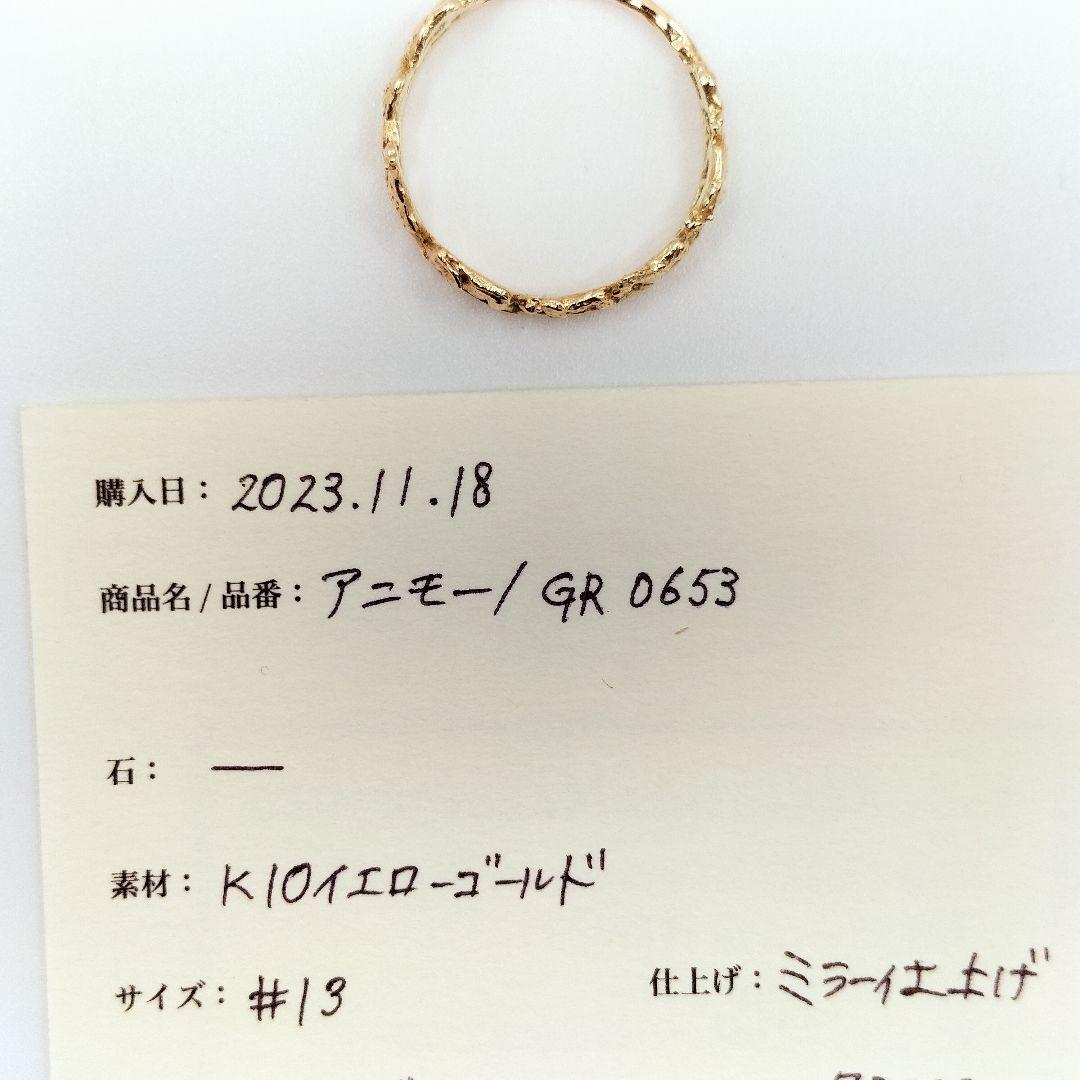 購入日： 2023.11.18
商品名 / 品番： アニモー/ GR 0653
石： —
素材： K10イエローゴールド
サイズ： #13 仕上げ： ミラー仕上げ